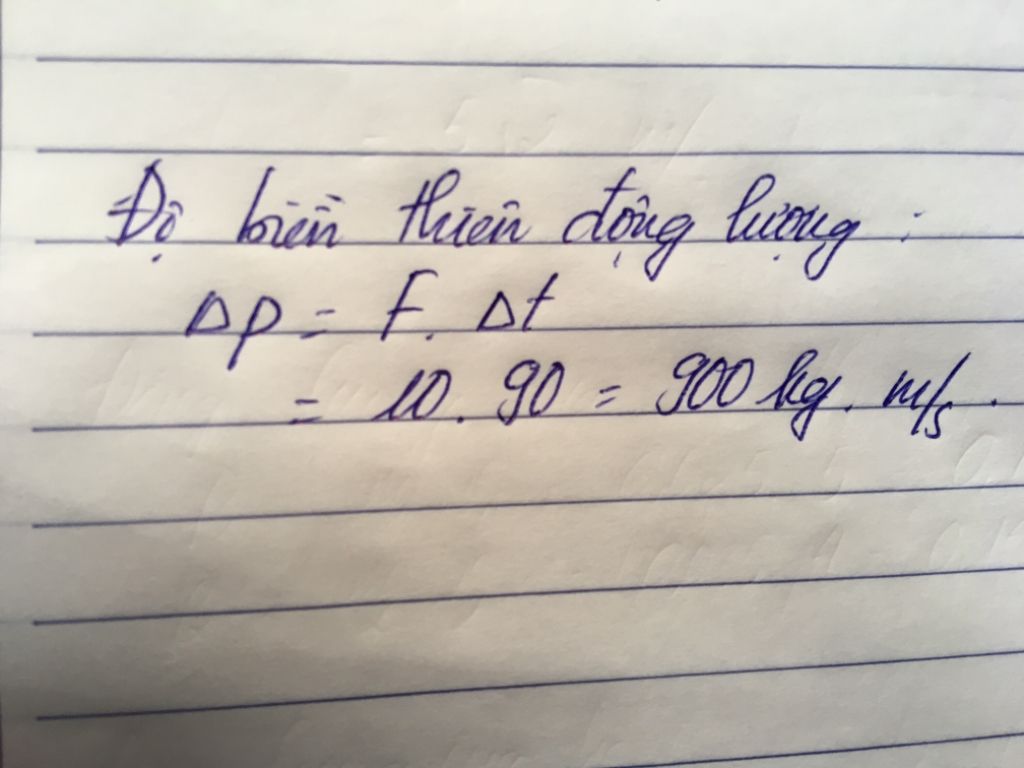 Độ biến thiên động lượng :
Δp = F. Δt
= 10. 90 = 900 kg. m/s.